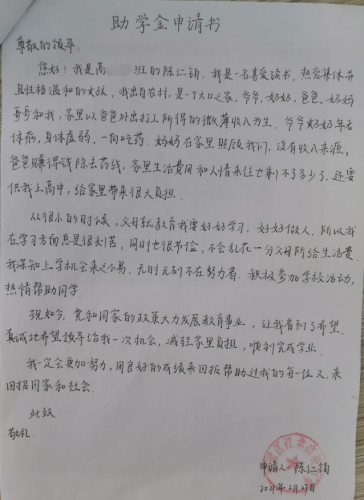 助学金申请书
尊敬的领导:
您好!我是高 班的陈仁钧,我是一名喜爱读书,热爱集体并
且性格温和的女孩,我出自农村,是一个大口之家,爷爷、奶奶、爸爸、妈妈
哥哥和我,家里以爸爸外出打工所得的微薄收入为生,爷爷奶奶年老
体病,身体虚弱,一向吃药。妈妈在家里照顾我们,没有收入来源,
爸爸赚得钱除去药钱,家里生活费用和人情来往也剩不了多少,还需
供我上高中,给家里带来很大负担。
从很小的时候,父母就教育我要好好学习,好好做人。所以我
在学习方面总是很刻苦,同时也很节俭,不会乱花一分父母所给生活费
我深知上学机会来之不易,无时无刻不在努力着。积极参加学校活动,
热情帮助同学。
现如今,党和国家的政策大力发展教育事业,让我看到了希望。
真诚地希望领导给我一次机会,减轻家里负担,顺利完成学业。
我一定会更加努力,用良好的成绩来回报帮助过我的每一位人,来
回报国家和社会。
此致
敬礼
申请人 陈仁钧